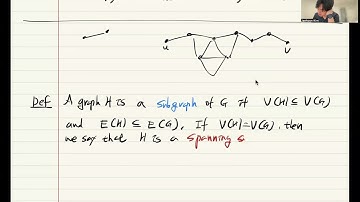 u
v
Def A graph H is a subgraph of G if V(H) ⊆ V(G)
and E(H) ⊆ E(G), If V(H)=V(G), then
we say that H is a spanning s